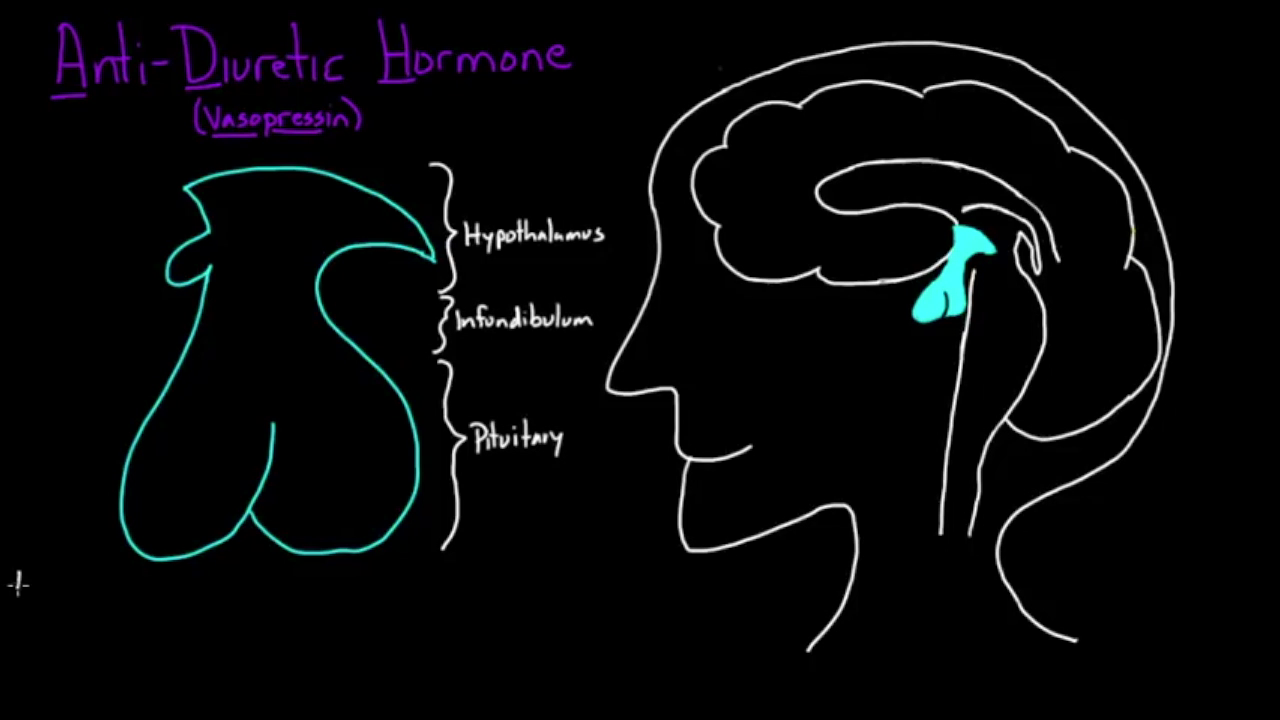 Anti-Diuretic Hormone
(Vasopressin)
Hypothalamus
Infundibulum
Pituitary